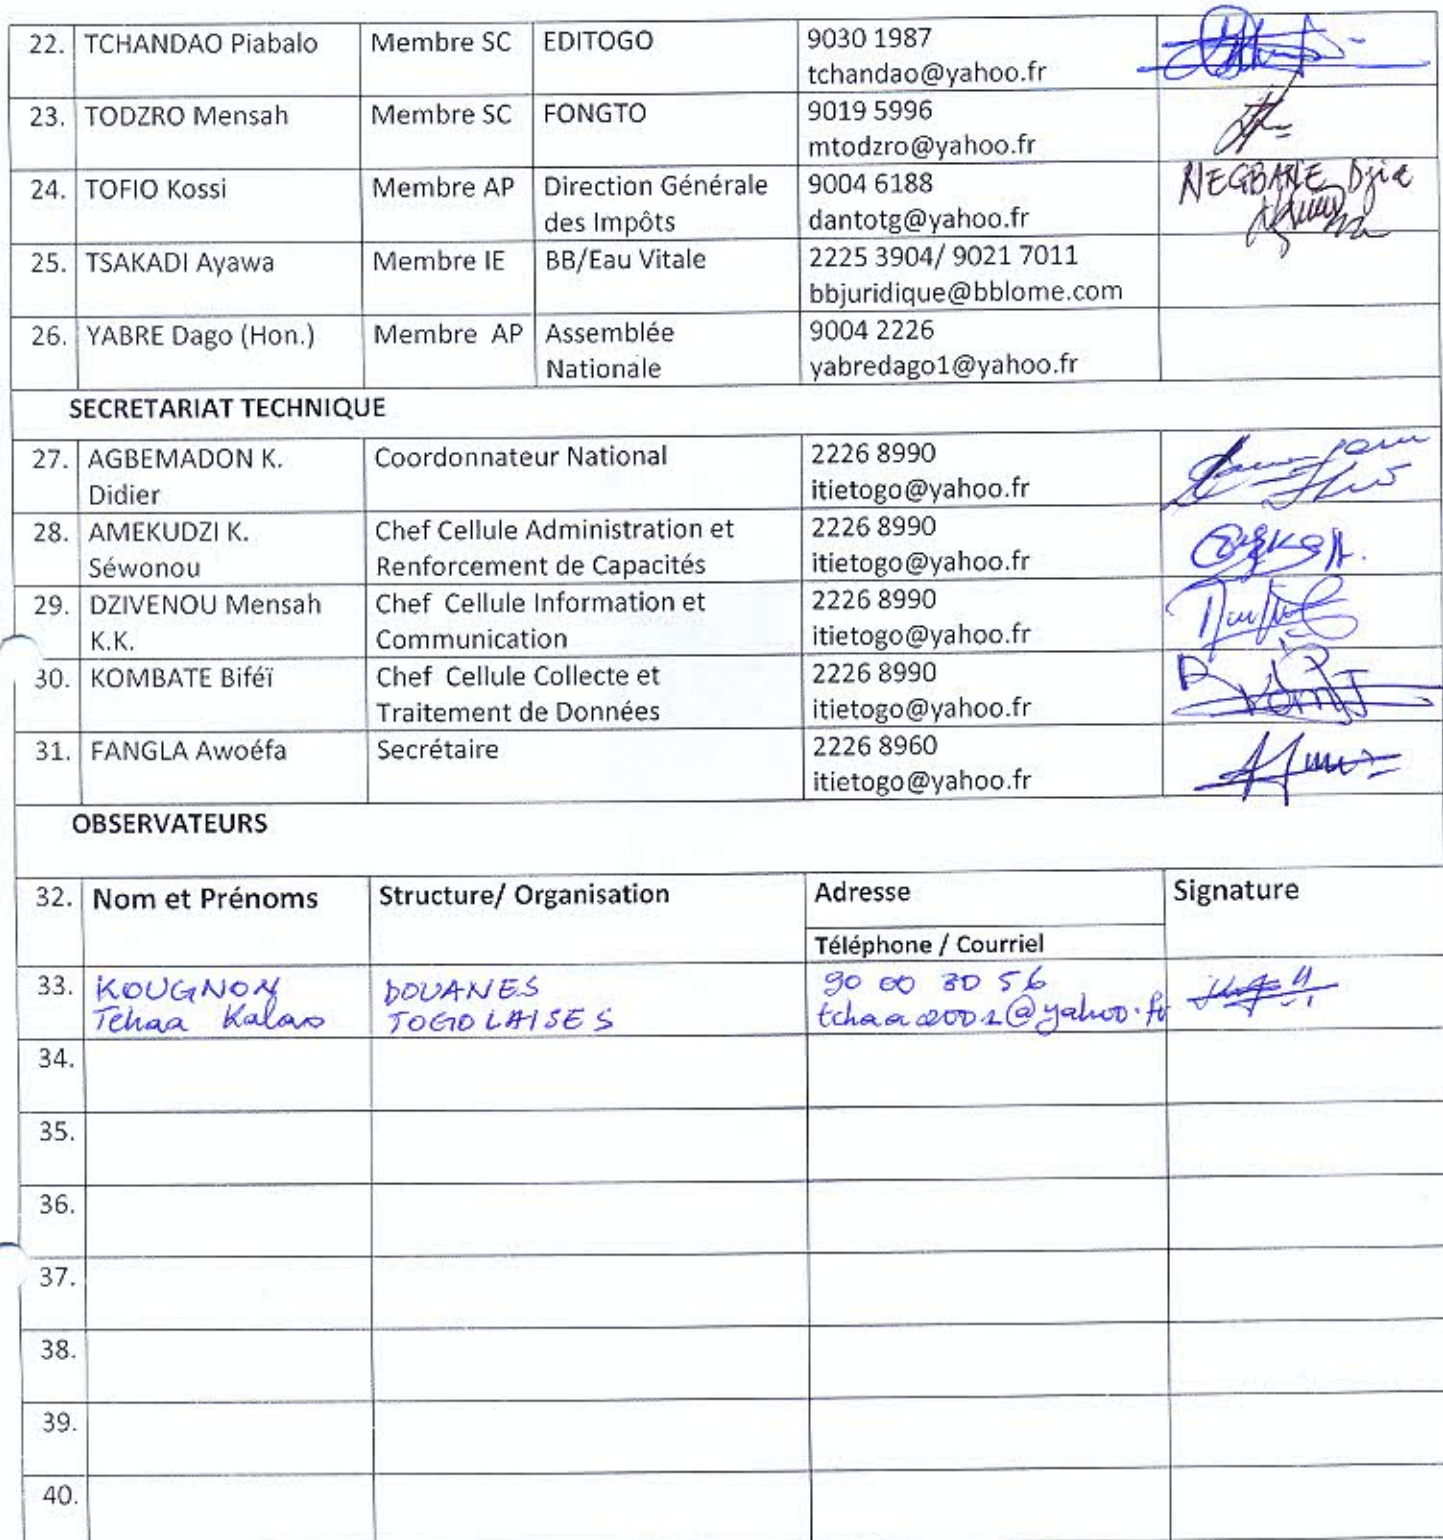 22. TCHANDAO Piabalo Membre SC EDITOGO 9030 1987
tchandao@yahoo.fr
23. TODZRO Mensah Membre SC FONGTO 9019 5996
mtodzro@yahoo.fr
24. TOFIO Kossi Membre AP Direction Générale 9004 6188
des Impôts dantotg@yahoo.fr
25. TSAKADI Ayawa Membre IE BB/Eau Vitale 2225 3904/ 9021 7011
bbjuridique@bblome.com
26. YABRE Dago (Hon.) Membre AP Assemblée 9004 2226
Nationale yabredago1@yahoo.fr
SECRETARIAT TECHNIQUE
27. AGBEMADON K. Coordonnateur National 2226 8990
Didier itietogo@yahoo.fr
28. AMEKUDZI K. Chef Cellule Administration et 2226 8990
Séwonou Renforcement de Capacités itietogo@yahoo.fr
29. DZIVENOU Mensah Chef Cellule Information et 2226 8990
K.K. Communication itietogo@yahoo.fr
30. KOMBATE Biféï Chef Cellule Collecte et 2226 8990
Traitement de Données itietogo@yahoo.fr
31. FANGLA Awoéfa Secrétaire 2226 8960
itietogo@yahoo.fr
OBSERVATEURS
32. Nom et Prénoms Structure/ Organisation Adresse Signature
Téléphone / Courriel
33. KOUGNON DOUANES 90 00 30 56
Tchaa Kalao TOGOLAISES tchaa2001@yahoo.fr
34.
35.
36.
37.
38.
39.
40.